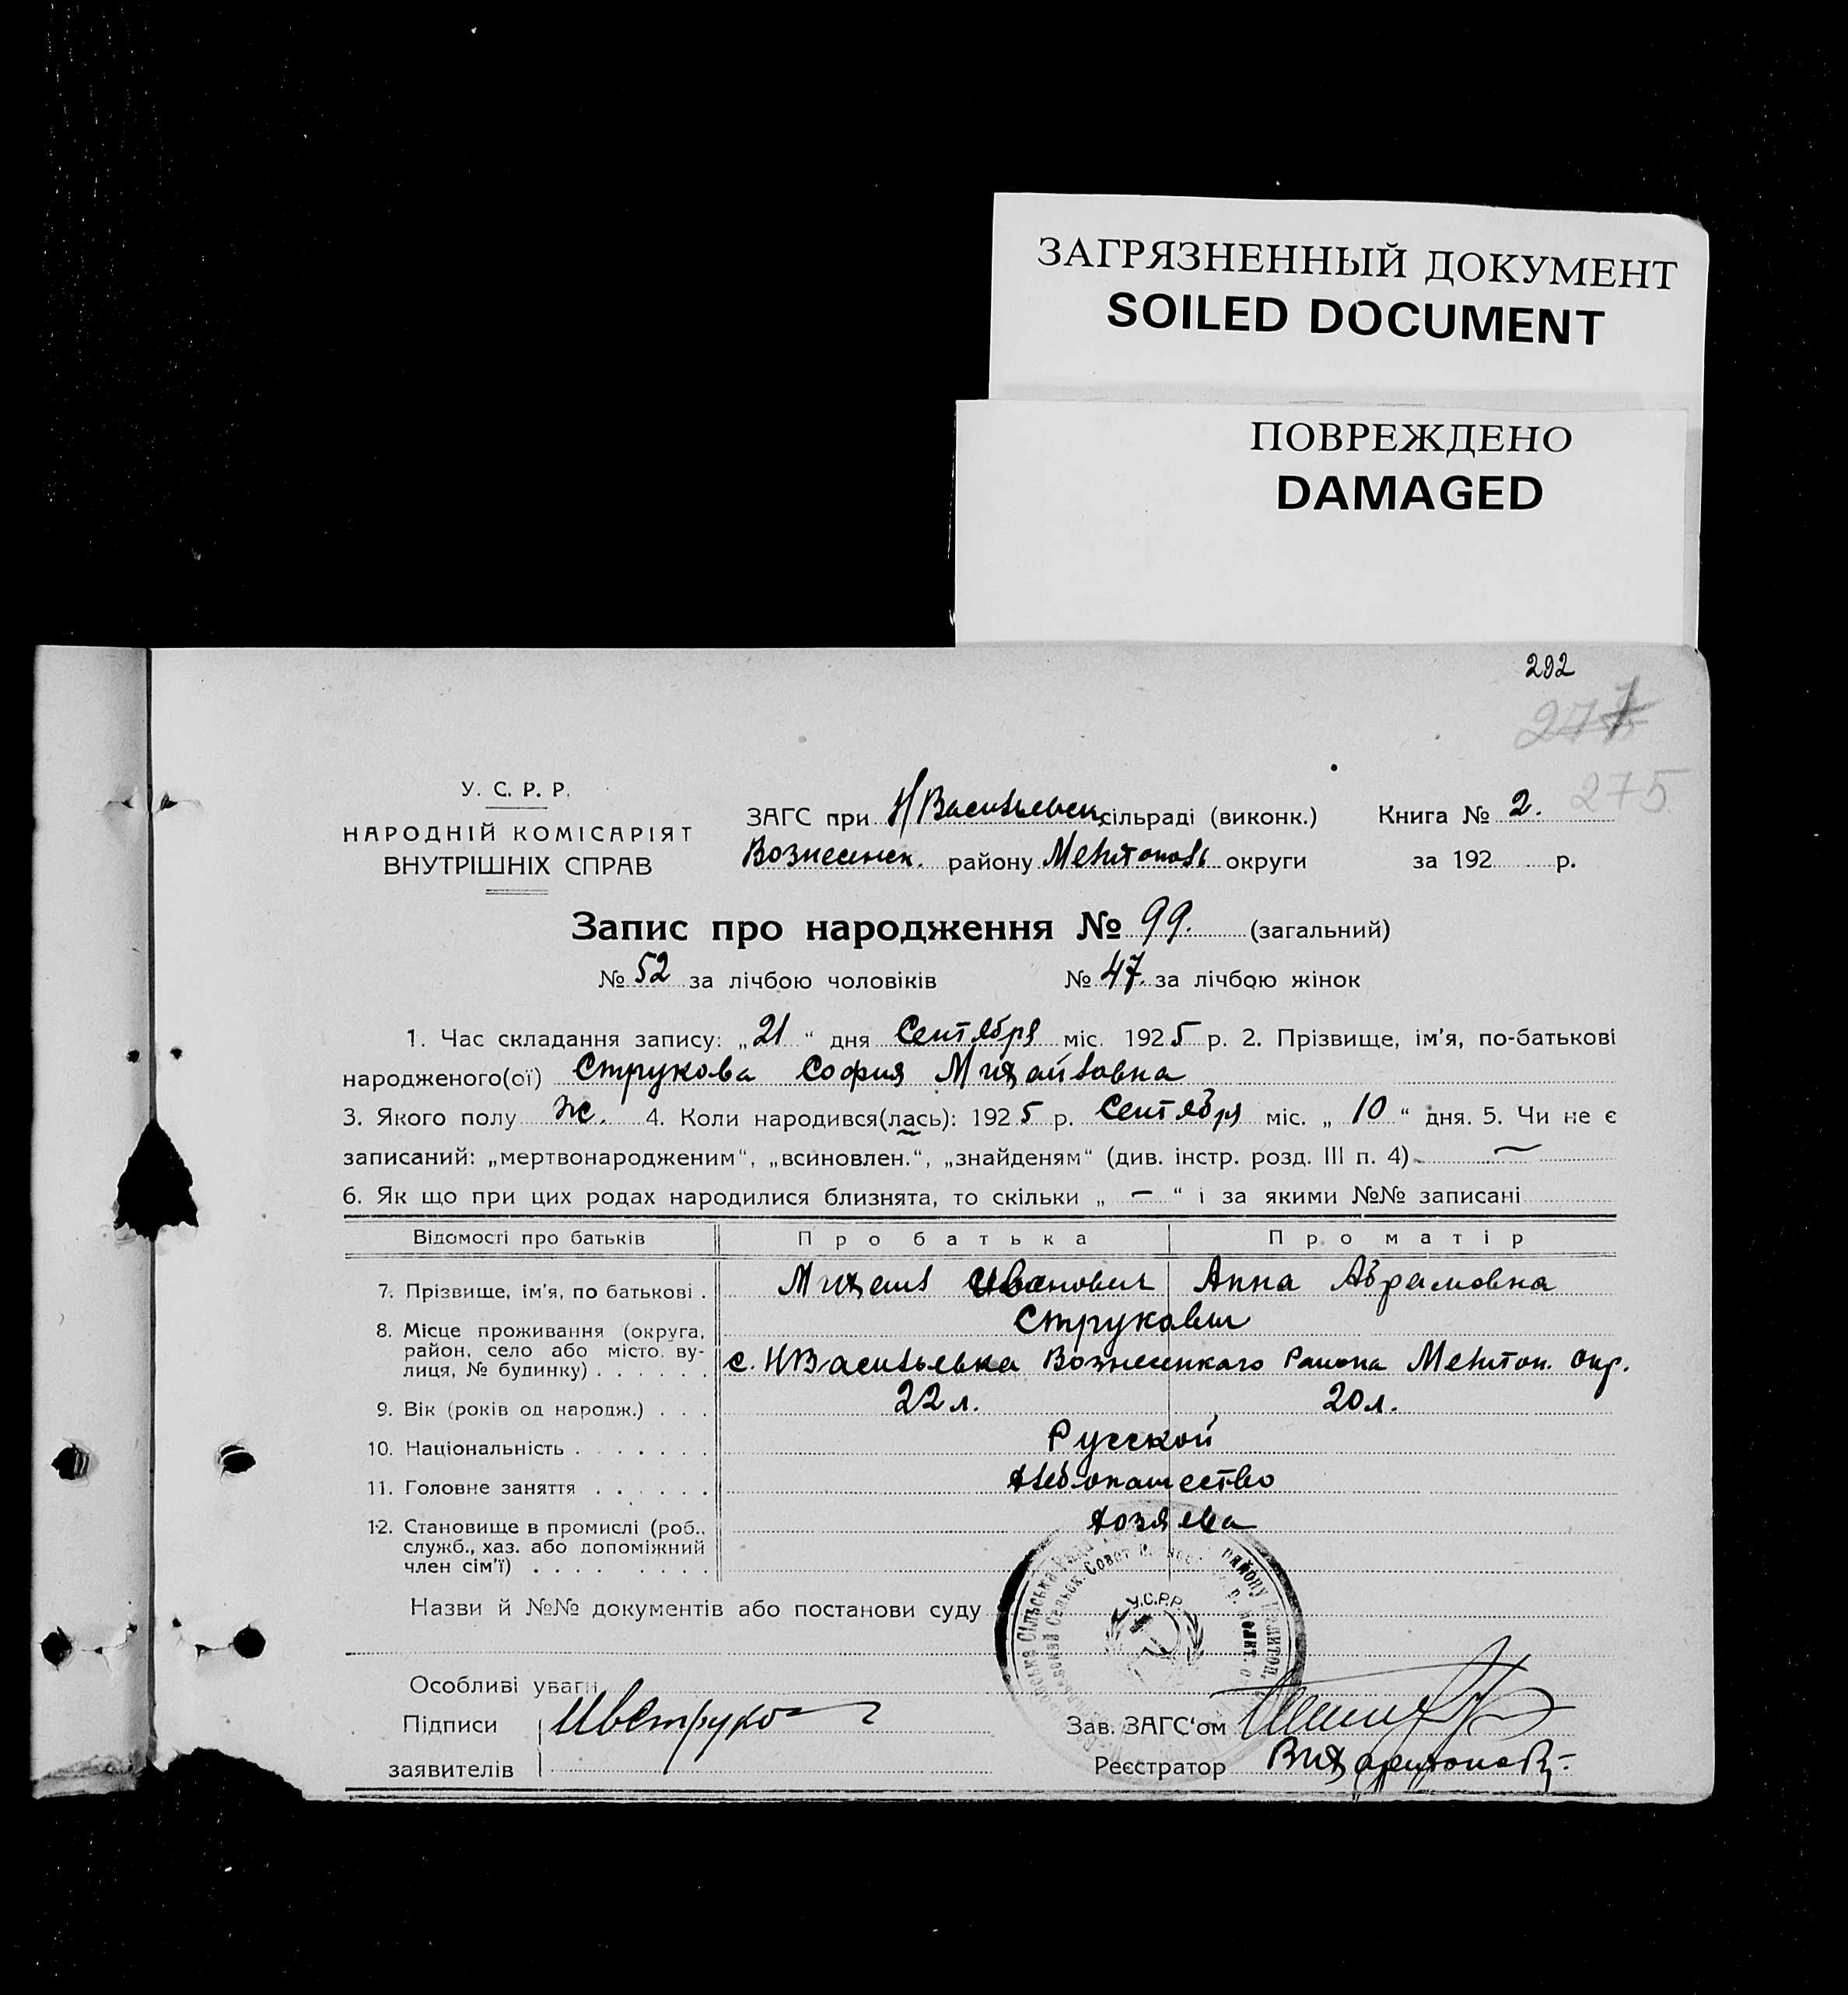 ЗАГРЯЗНЕННЫЙ ДОКУМЕНТ
SOILED DOCUMENT
ПОВРЕЖДЕНО
DAMAGED
292
277
275
У. С. Р. Р.
НАРОДНІЙ КОМІСАРІЯТ
ВНУТРІШНІХ СПРАВ
ЗАГС при Н Васильевск. сільраді (виконк.) Книга № 2.
Вознесенск. району Мелитополь округи за 192 р.
Запис про народження № 99. (загальний)
№ 52 за лічбою чоловіків № 47. за лічбою жінок
1. Час складання запису: „21“ дня Сентября міс. 1925 р. 2. Прізвище, ім'я, по-батькові
народженого(ої) Струкова София Михайловна
3. Якого полу ж. 4. Коли народився(лась): 1925 р. Сентября міс. „10“ дня. 5. Чи не є
записаний: „мертвонародженим“, „всиновлен.“, „знайденям“ (див. інстр. розд. III п. 4) —
6. Як що при цих родах народилися близнята, то скільки „ — “ і за якими №№ записані
Відомості про батьків Про батька Про матір
7. Прізвище, ім'я, по батькові . Михаил Иванович Анна Абрамовна
Струковы
8. Місце проживання (округа,
район, село або місто, ву-
лиця, № будинку) . . . . . . с. НВасильевка Вознесенкаго Раиона Мелитоп. окр.
9. Вік (років од народж.) . . . 22 л. 20 л.
10. Національність . . . . . . . Русской
11. Головне заняття . . . . . . Хлебопашество
12. Становище в промислі (роб.,
служб., хаз. або допоміжний
член сім'ї) . . . . . . . . Хозяева
Назви й №№ документів або постанови суду
У.С.Р.Р.
Особливі уваги
Підписи
заявителів
Зав. ЗАГС'ом
Реєстратор